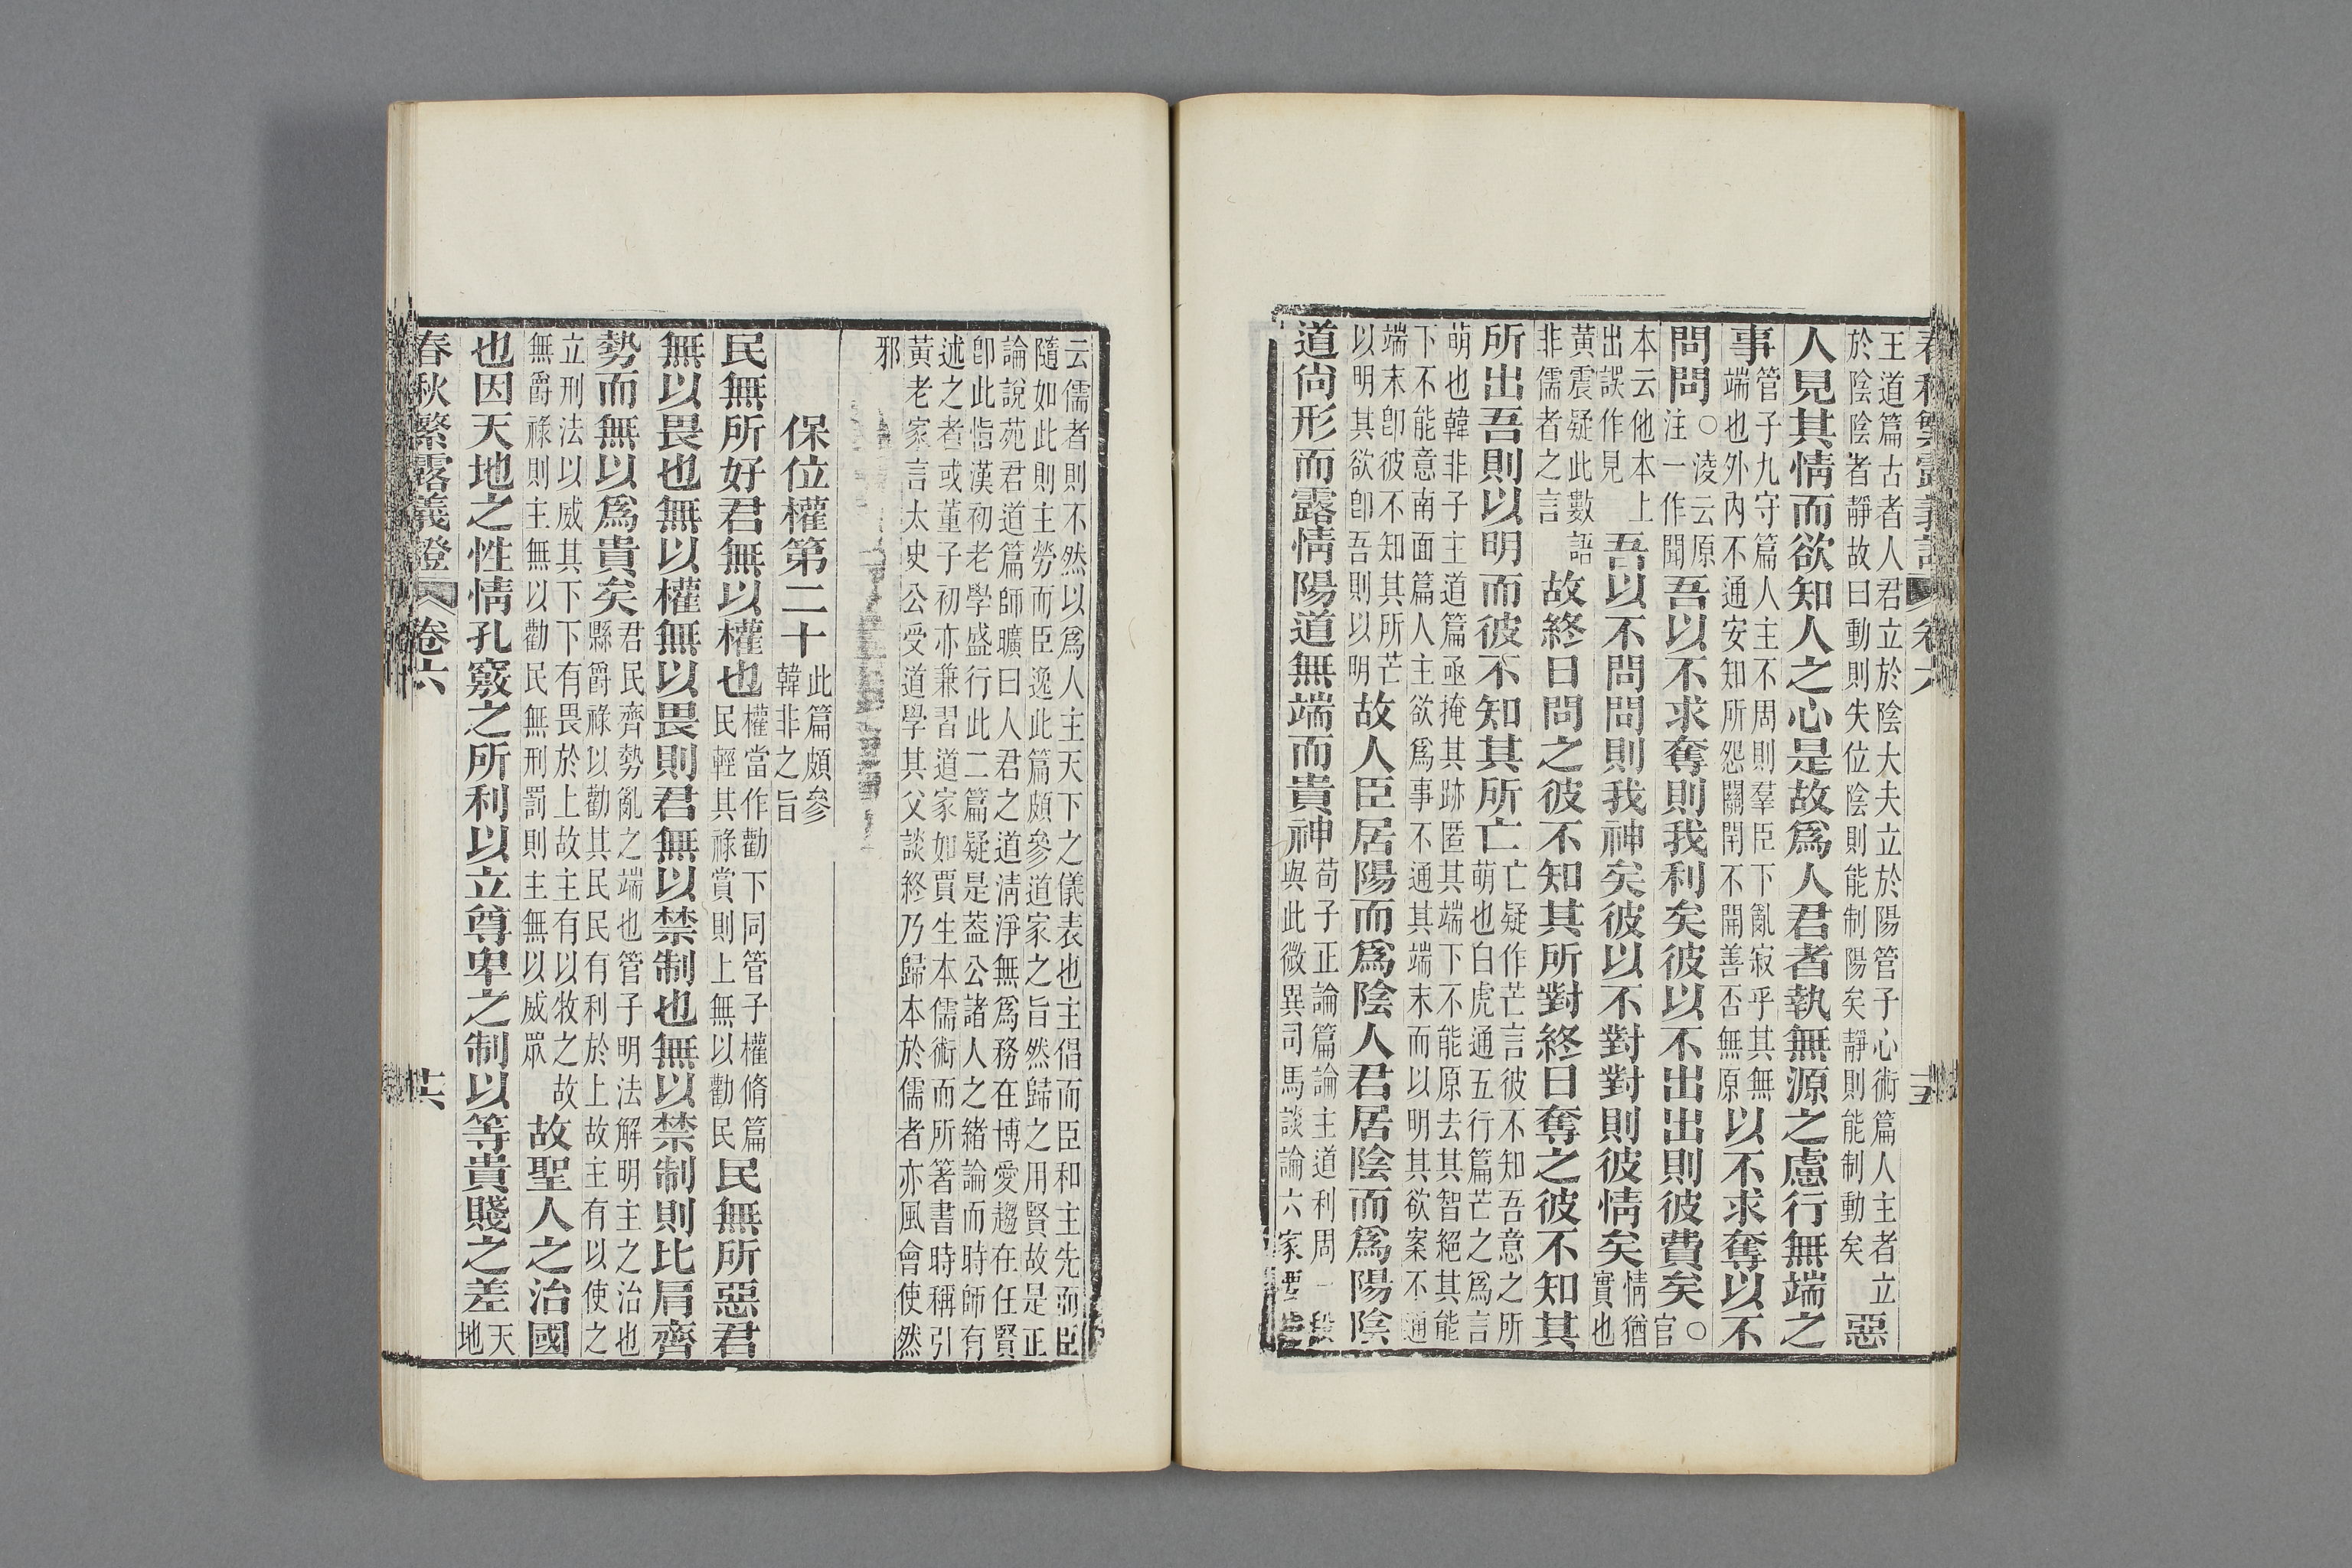 春秋繁露義證 卷六 十五
王道篇古者人君立於陰大夫立於陽管子心術篇人主者立
於陰陰者靜故曰動則失位陰則能制陽矣靜則能制動矣 惡
人見其情而欲知人之心是故爲人君者執無源之慮行無端之
事 管子九守篇人主不周則羣臣下亂寂乎其無
端也外內不通安知所怨關閈不開善否無原 以不求奪以不
問問 ○淩云原
注一作聞 吾以不求奪則我利矣彼以不出出則彼費矣 ○
官
本云他本上
出誤作見 吾以不問問則我神矣彼以不對對則彼情矣 情猶
實也
黃震疑此數語
非儒者之言 故終日問之彼不知其所對終日奪之彼不知其
所出吾則以明而彼不知其所亡 亡疑作芒言彼不知吾意之所
萌也白虎通五行篇芒之爲言
萌也韓非子主道篇函掩其跡匿其端下不能原去其智絕其能
下不能意南面篇人主欲爲事不通其端末而以明其欲案不通
端末卽彼不知其所芒
以明其欲卽吾則以明 故人臣居陽而爲陰人君居陰而爲陽陰
道尙形而露情陽道無端而貴神 荀子正論篇論主道利周一段
與此微異司馬談論六家要恉
云儒者則不然以爲人主天下之儀表也主倡而臣和主先而臣
隨如此則主勞而臣逸此篇頗參道家之旨然歸之用賢故是正
論說苑君道篇師曠曰人君之道淸淨無爲務在博愛趨在任賢
卽此恉漢初老學盛行此二篇疑是蓋公諸人之緒論而時師有
述之者或董子初亦兼習道家如賈生本儒術而所箸書時稱引
黃老家言太史公受道學其父談終乃歸本於儒者亦風會使然
邪
保位權第二十 此篇頗參
韓非之旨
民無所好君無以權也 權當作勸下同管子權脩篇
民輕其祿賞則上無以勸民 民無所惡君
無以畏也無以權無以畏則君無以禁制也無以禁制則比肩齊
勢而無以爲貴矣 君民齊勢亂之端也管子明法解明主之治也
縣爵祿以勸其民民有利於上故主有以使之
立刑法以威其下下有畏於上故主有以牧之故
無爵祿則主無以勸民無刑罰則主無以威眾 故聖人之治國
也因天地之性情孔竅之所利以立尊卑之制以等貴賤之差 天
地
春秋繁露義證 卷六 十六